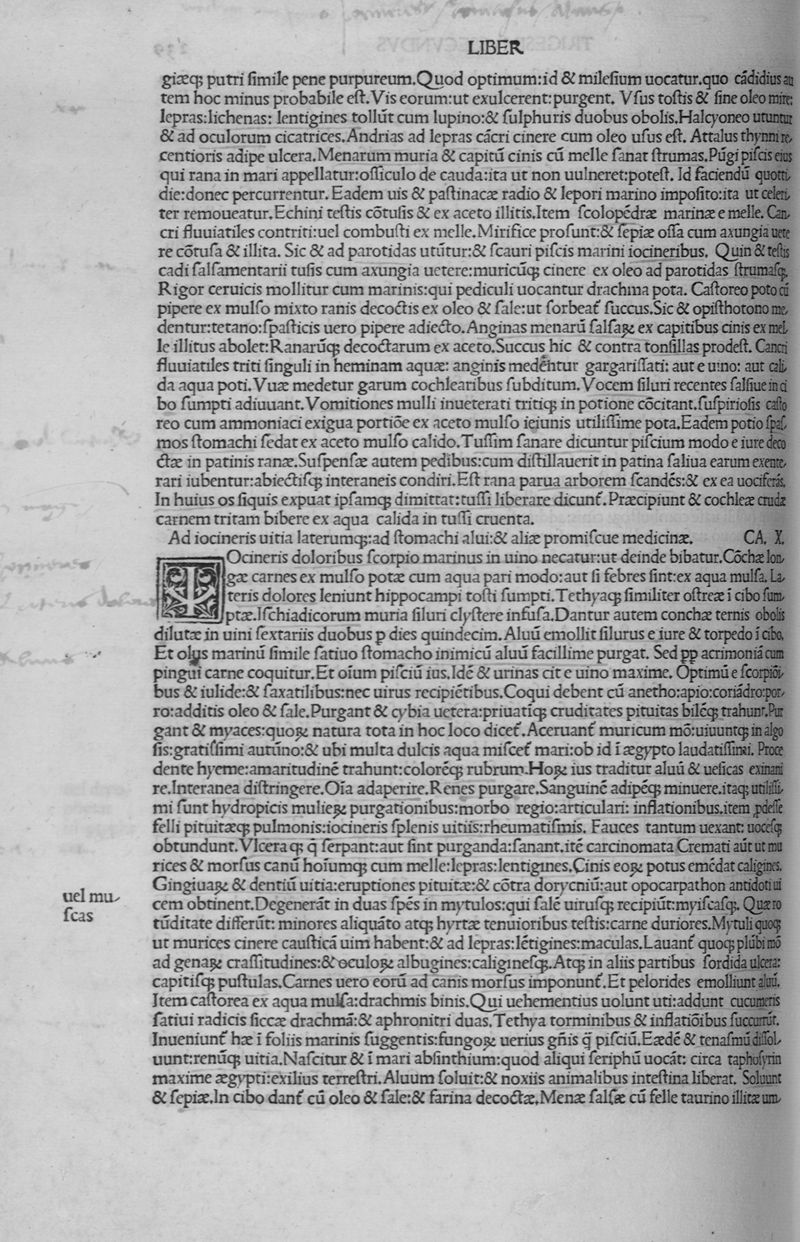 LIBER
giæq; putri ſimile pene purpureum.Quod optimum:id & mileſium uocatur.quo cādidius au
tem hoc minus probabile eſt.Vis eorum:ut exulcerent:purgent. Vſus toſtis & ſine oleo mire:
lepras:lichenas: lentigines tollūt cum lupino:& ſulphuris duobus obolis.Halcyoneo utuntur
& ad oculorum cicatrices.Andrias ad lepras cācri cinere cum oleo uſus eſt. Attalus thynni re,
centioris adipe ulcera.Menarum muria & capitū cinis cū melle ſanat ſtrumas.Pūgi piſcis eius
qui rana in mari appellatur:oſſiculo de cauda:ita ut non uulneret:poteſt. Id faciendū quotti,
die:donec percurrentur. Eadem uis & paſtinacæ radio & lepori marino impoſito:ita ut celeri,
ter remoueatur.Echini teſtis cōtuſis & ex aceto illitis.Item ſcolopēdræ marinæ e melle. Can,
cri fluuiatiles contriti:uel combuſti ex melle.Mirifice proſunt:& ſepiæ oſſa cum axungia uete
re cōtuſa & illita. Sic & ad parotidas utūtur:& ſcauri piſcis marini iocineribus. Quin & teſtis
cadi ſalſamentarii tuſis cum axungia uetere:muricūq; cinere ex oleo ad parotidas ſtrumaſq;.
Rigor ceruicis mollitur cum marinis:qui pediculi uocantur drachma pota. Caſtoreo poto cū
pipere ex mulſo mixto ranis decoctis ex oleo & ſale:ut ſorbeat᷑ ſuccus.Sic & opiſthotono me,
dentur:tetano:ſpaſticis uero pipere adiecto.Anginas menarū ſalſaꝝ ex capitibus cinis ex mel,
le illitus abolet:Ranarūq; decoctarum ex aceto.Succus hic & contra tonſillas prodeſt. Cancri
fluuiatiles triti ſinguli in heminam aquæ: anginis medētur gargariſſati: aut e uino: aut cali,
da aqua poti. Vuæ medetur garum cochlearibus ſubditum. Vocem ſiluri recentes ſalſiue in ci
bo ſumpti adiuuant. Vomitiones mulli inueterati tritiq; in potione cōcitant.ſuſpirioſis caſto
reo cum ammoniaci exigua portiōe ex aceto mulſo ieiunis utiliſſime pota.Eadem potio ſpaſ,
mos ſtomachi ſedat ex aceto mulſo calido.Tuſſim ſanare dicuntur piſcium modo e iure deco
ctæ in patinis ranæ.Suſpenſæ autem pedibus:cum diſtillauerit in patina ſaliua earum exente,
rari iubentur:abiectiſq; interaneis condiri.Eſt rana parua arborem ſcandēs:& ex ea uociferās.
In huius os ſiquis expuat ipſamq; dimittat:tuſſi liberare dicunt᷑. Præcipiunt & cochleæ crudæ
carnem tritam bibere ex aqua calida in tuſſi cruenta.
Ad iocineris uitia laterumq;:ad ſtomachi alui:& aliæ promiſcue medicinæ. CA. X.
IOcineris doloribus ſcorpio marinus in uino necatur:ut deinde bibatur.Cōchæ lon,
gæ carnes ex mulſo potæ cum aqua pari modo:aut ſi febres ſint:ex aqua mulſa. La,
teris dolores leniunt hippocampi toſti ſumpti.Tethyaq; ſimiliter oſtreæ ī cibo ſum,
ptæ.Iſchiadicorum muria ſiluri clyſtere infuſa.Dantur autem conchæ ternis obolis
dilutæ in uini ſextariis duobus p dies quindecim. Aluū emollit ſilurus e iure & torpedo ī cibo.
Et olus marinū ſimile ſatiuo ſtomacho inimicū aluū facillime purgat. Sed ꝓp acrimoniā cum
pingui carne coquitur.Et oīum piſciū ius.Idē & urinas cit e uino maxime. Optimū e ſcorpiōi,
bus & iulide:& ſaxatilibus:nec uirus recipiētibus.Coqui debent cū anetho:apio:coriādro:por,
ro:additis oleo & ſale.Purgant & cybia uetera:priuatīq; cruditates pituitas bilēq; trahunt.Pur
gant & myaces:quoꝝ natura tota in hoc loco dicet᷑.Aceruant᷑ muricum mō:uiuuntq; in algo
ſis:gratiſſimi autūno:& ubi multa dulcis aqua miſcet᷑ mari:ob id ī ægypto laudatiſſimi. Proce
dente hyeme:amaritudinē trahunt:colorēq; rubrum.Hoꝝ ius traditur aluū & ueſicas exinani
re.Interanea diſtringere.Oīa adaperire.Renes purgare.Sanguinē adipēq; minuere.itaq; utiliſſi,
mi ſunt hydropicis mulieꝝ purgationibus:morbo regio:articulari: inflationibus.item ꝓdeſſe
felli pituitæq; pulmonis:iocineris ſplenis uitiis:rheumatiſmis. Fauces tantum uexant: uocēſq;
obtundunt.Vlcera q; q̄ ſerpant:aut ſint purganda:ſanant.itē carcinomata Cremati aūt ut mu
rices & morſus canū hoīumq; cum melle:lepras:lentigines.Cinis eoꝝ potus emēdat caligines.
Gingiuaꝝ & dentiū uitia:eruptiones pituitæ:& cōtra dorycniū:aut opocarpathon antidoti ui
cem obtinent.Degenerāt in duas ſpēs in mytulos:qui ſalē uiruſq; recipiūt:myiſcaſq;. Quæ ro
tūditate differūt: minores aliquāto atq; hyrtæ tenuioribus teſtis:carne duriores.Mytuli quoq;
uel mu,
ſcas
ut murices cinere cauſticā uim habent:& ad lepras:lētigines:maculas.Lauant᷑ quoq; plūbi mō
ad genaꝝ craſſitudines:& oculoꝝ albugines:caligineſq;.Atq; in aliis partibus ſordida ulcera:
capitiſq; puſtulas.Carnes uero eorū ad canis morſus imponunt᷑.Et pelorides emolliunt aluū.
Item caſtorea ex aqua mulſa:drachmis binis.Qui uehementius uolunt uti:addunt cucumeris
ſatiui radicis ſiccæ drachmā:& aphronitri duas.Tethya torminibus & inflatiōibus ſuccurrūt.
Inueniunt᷑ hæ ī foliis marinis ſuggentis:fungoꝝ uerius gn̄is q̄ piſciū.Eædē & tenaſmū diſſol,
uunt:renūq; uitia.Naſcitur & ī mari abſinthium:quod aliqui ſeriphū uocāt: circa taphoſyrin
maxime ægypti:exilius terreſtri.Aluum ſoluit:& noxiis animalibus inteſtina liberat. Soluunt
& ſepiæ.In cibo dant᷑ cū oleo & ſale:& farina decoctæ.Menæ ſalſæ cū felle taurino illitæ um,